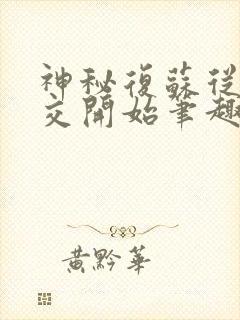 神秘復蘇從
交開始筆趣
黃黔華